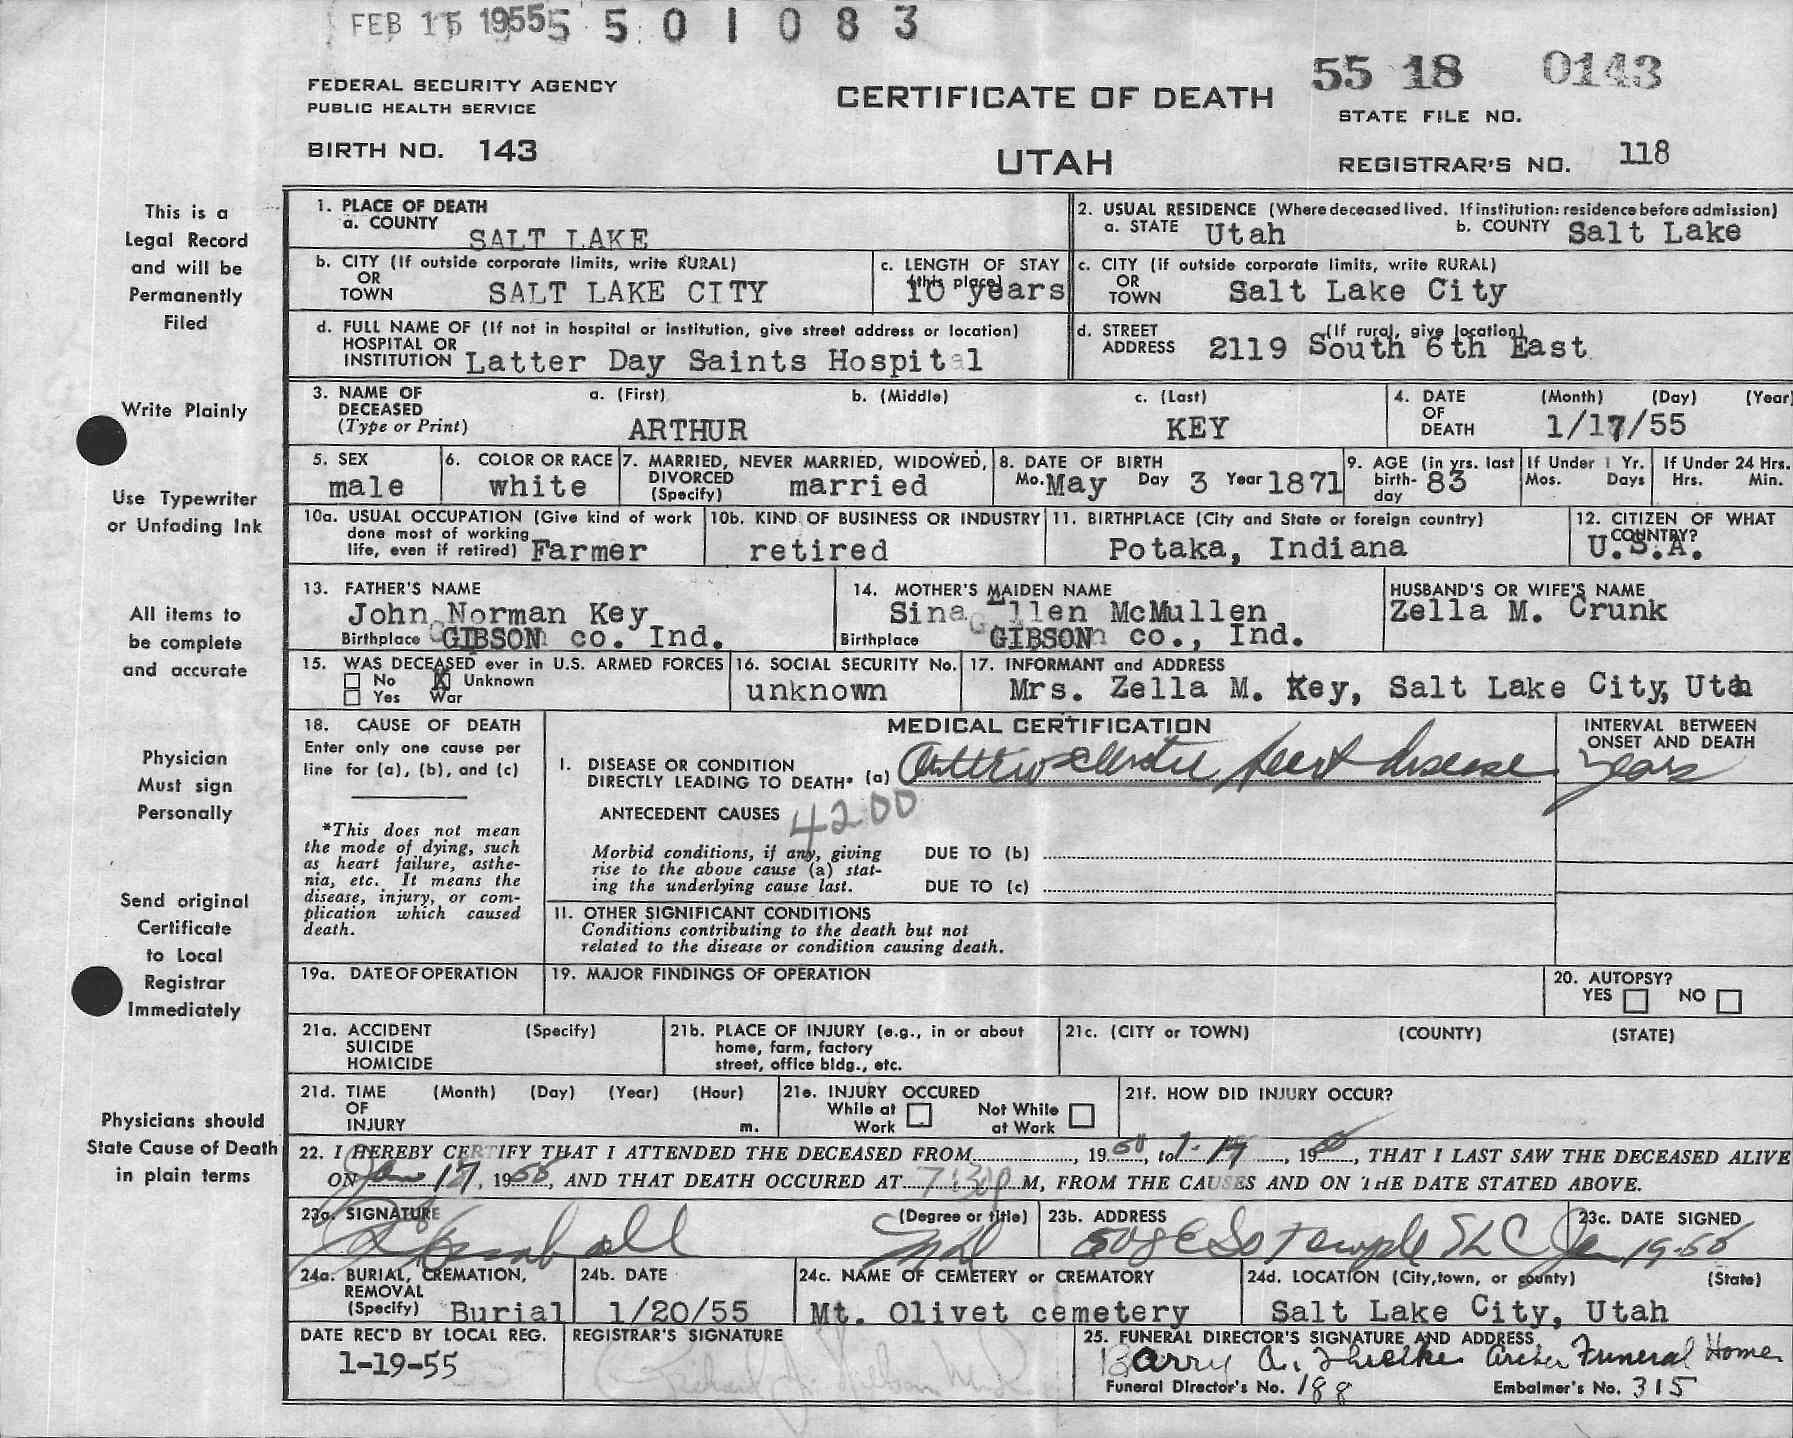 FEB 15 1955 5 5 0 1 0 8 3
55 18 0143
FEDERAL SECURITY AGENCY
PUBLIC HEALTH SERVICE
CERTIFICATE OF DEATH
STATE FILE NO.
BIRTH NO. 143
UTAH
REGISTRAR'S NO. 118
This is a
Legal Record
and will be
Permanently
Filed
Write Plainly
Use Typewriter
or Unfading Ink
All items to
be complete
and accurate
Physician
Must sign
Personally
Send original
Certificate
to Local
Registrar
Immediately
Physicians should
State Cause of Death
in plain terms
1. PLACE OF DEATH
a. COUNTY SALT LAKE
2. USUAL RESIDENCE (Where deceased lived. If institution: residence before admission)
a. STATE Utah b. COUNTY Salt Lake
b. CITY (If outside corporate limits, write RURAL)
OR
TOWN SALT LAKE CITY
c. LENGTH OF STAY
(this place)
10 years
c. CITY (if outside corporate limits, write RURAL)
OR
TOWN Salt Lake City
d. FULL NAME OF (If not in hospital or institution, give street address or location)
HOSPITAL OR
INSTITUTION Latter Day Saints Hospital
d. STREET (If rural, give location)
ADDRESS 2119 South 6th East
3. NAME OF DECEASED
(Type or Print)
a. (First) b. (Middle) c. (Last)
ARTHUR KEY
4. DATE OF DEATH (Month) (Day) (Year)
1/17/55
5. SEX
male
6. COLOR OR RACE
white
7. MARRIED, NEVER MARRIED, WIDOWED,
DIVORCED
(Specify) married
8. DATE OF BIRTH
Mo. May Day 3 Year 1871
9. AGE (in yrs. last
birth-
day 83
If Under 1 Yr.
Mos. Days
If Under 24 Hrs.
Hrs. Min.
10a. USUAL OCCUPATION (Give kind of work
done most of working
life, even if retired) Farmer
10b. KIND OF BUSINESS OR INDUSTRY
retired
11. BIRTHPLACE (City and State or foreign country)
Potaka, Indiana
12. CITIZEN OF WHAT
COUNTRY?
U.S.A.
13. FATHER'S NAME
John Norman Key
Birthplace GIBSON co. Ind.
14. MOTHER'S MAIDEN NAME
Sina Ellen McMullen
Birthplace GIBSON co., Ind.
HUSBAND'S OR WIFE'S NAME
Zella M. Crunk
15. WAS DECEASED ever in U.S. ARMED FORCES
No X Unknown
Yes War
16. SOCIAL SECURITY No.
unknown
17. INFORMANT and ADDRESS
Mrs. Zella M. Key, Salt Lake City, Utah
18. CAUSE OF DEATH
Enter only one cause per
line for (a), (b), and (c)
*This does not mean
the mode of dying, such
as heart failure, asthe-
nia, etc. It means the
disease, injury, or com-
plication which caused
death.
MEDICAL CERTIFICATION
I. DISEASE OR CONDITION
DIRECTLY LEADING TO DEATH* (a) heart disease
INTERVAL BETWEEN
ONSET AND DEATH
years
ANTECEDENT CAUSES 4200
Morbid conditions, if any, giving
rise to the above cause (a) stat-
ing the underlying cause last.
DUE TO (b)
DUE TO (c)
II. OTHER SIGNIFICANT CONDITIONS
Conditions contributing to the death but not
related to the disease or condition causing death.
19a. DATE OF OPERATION
19. MAJOR FINDINGS OF OPERATION
20. AUTOPSY?
YES NO
21a. ACCIDENT (Specify)
SUICIDE
HOMICIDE
21b. PLACE OF INJURY (e.g., in or about
home, farm, factory
street, office bldg., etc.
21c. (CITY or TOWN) (COUNTY) (STATE)
21d. TIME (Month) (Day) (Year) (Hour)
OF
INJURY m.
21e. INJURY OCCURED
While at Work Not While at Work
21f. HOW DID INJURY OCCUR?
22. I HEREBY CERTIFY THAT I ATTENDED THE DECEASED FROM , 19 , to 1-17 , 19 , THAT I LAST SAW THE DECEASED ALIVE
ON Jan 17, 1955, AND THAT DEATH OCCURED AT 7:30p M, FROM THE CAUSES AND ON THE DATE STATED ABOVE.
23a. SIGNATURE (Degree or title)
MD
23b. ADDRESS
508 E So Temple SLC
23c. DATE SIGNED
Jan 19-55
24a. BURIAL, CREMATION,
REMOVAL
(Specify) Burial
24b. DATE
1/20/55
24c. NAME OF CEMETERY or CREMATORY
Mt. Olivet cemetery
24d. LOCATION (City, town, or county) (State)
Salt Lake City, Utah
DATE REC'D BY LOCAL REG.
1-19-55
REGISTRAR'S SIGNATURE
25. FUNERAL DIRECTOR'S SIGNATURE AND ADDRESS
Barry A. Archer Funeral Home
Funeral Director's No. 188 Embalmer's No. 315